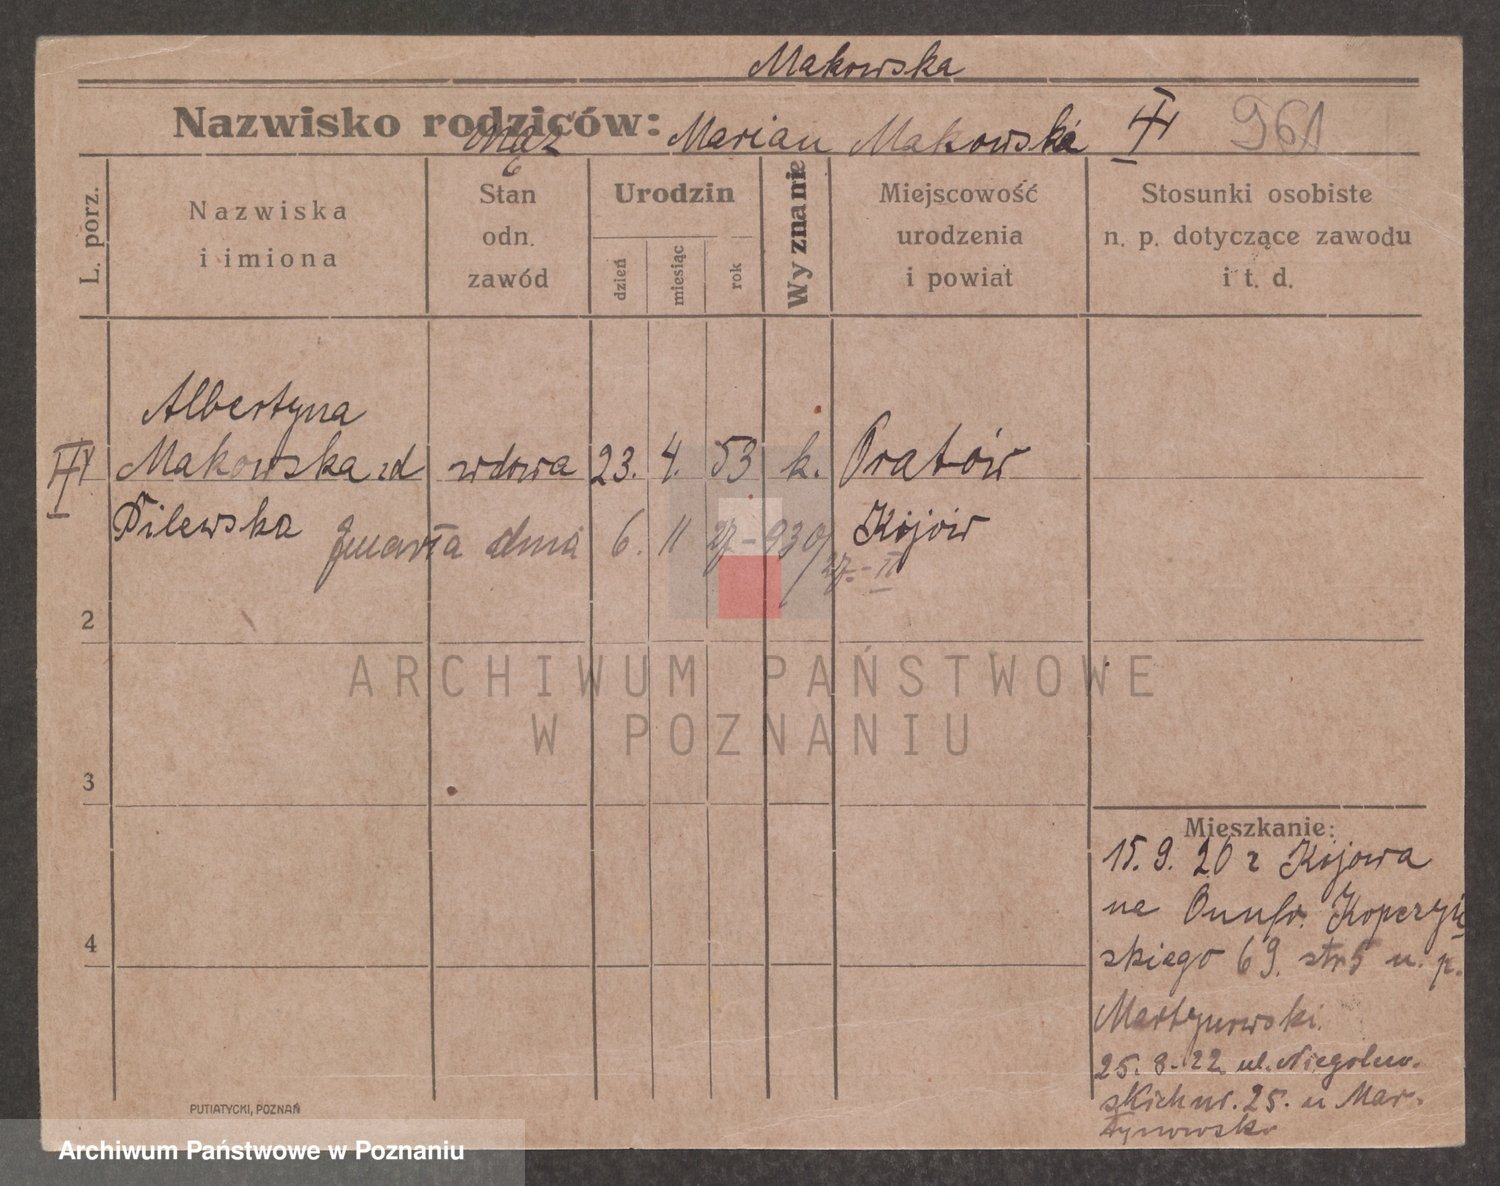 Makowska
Nazwisko rodziców:
Mąż Marian Makowski III 961
L. porz.
Nazwiska
i imiona
Stan
odn.
zawód
Urodzin
dzień
miesiąc
rok
Wyznanie
Miejscowość
urodzenia
i powiat
Stosunki osobiste
n. p. dotyczące zawodu
i t. d.
Albertyna
Makowska zd wdowa 23. 4. 53 k.
Pilewska Kijów
zmarła dnia 6. 11 27.-930/
27.-II
2
ARCHIWUM PAŃSTWOWE
W POZNANIU
3
Mieszkanie:
15. 9. 20 z Kijowa
na
skiego 69. u. p.
Martynowski.
25. 8. 22 ul. Niegolew-
skich nr. 25. u Mar-
tynowsk
4
PUTIATYCKI, POZNAŃ
Archiwum Państwowe w Poznaniu